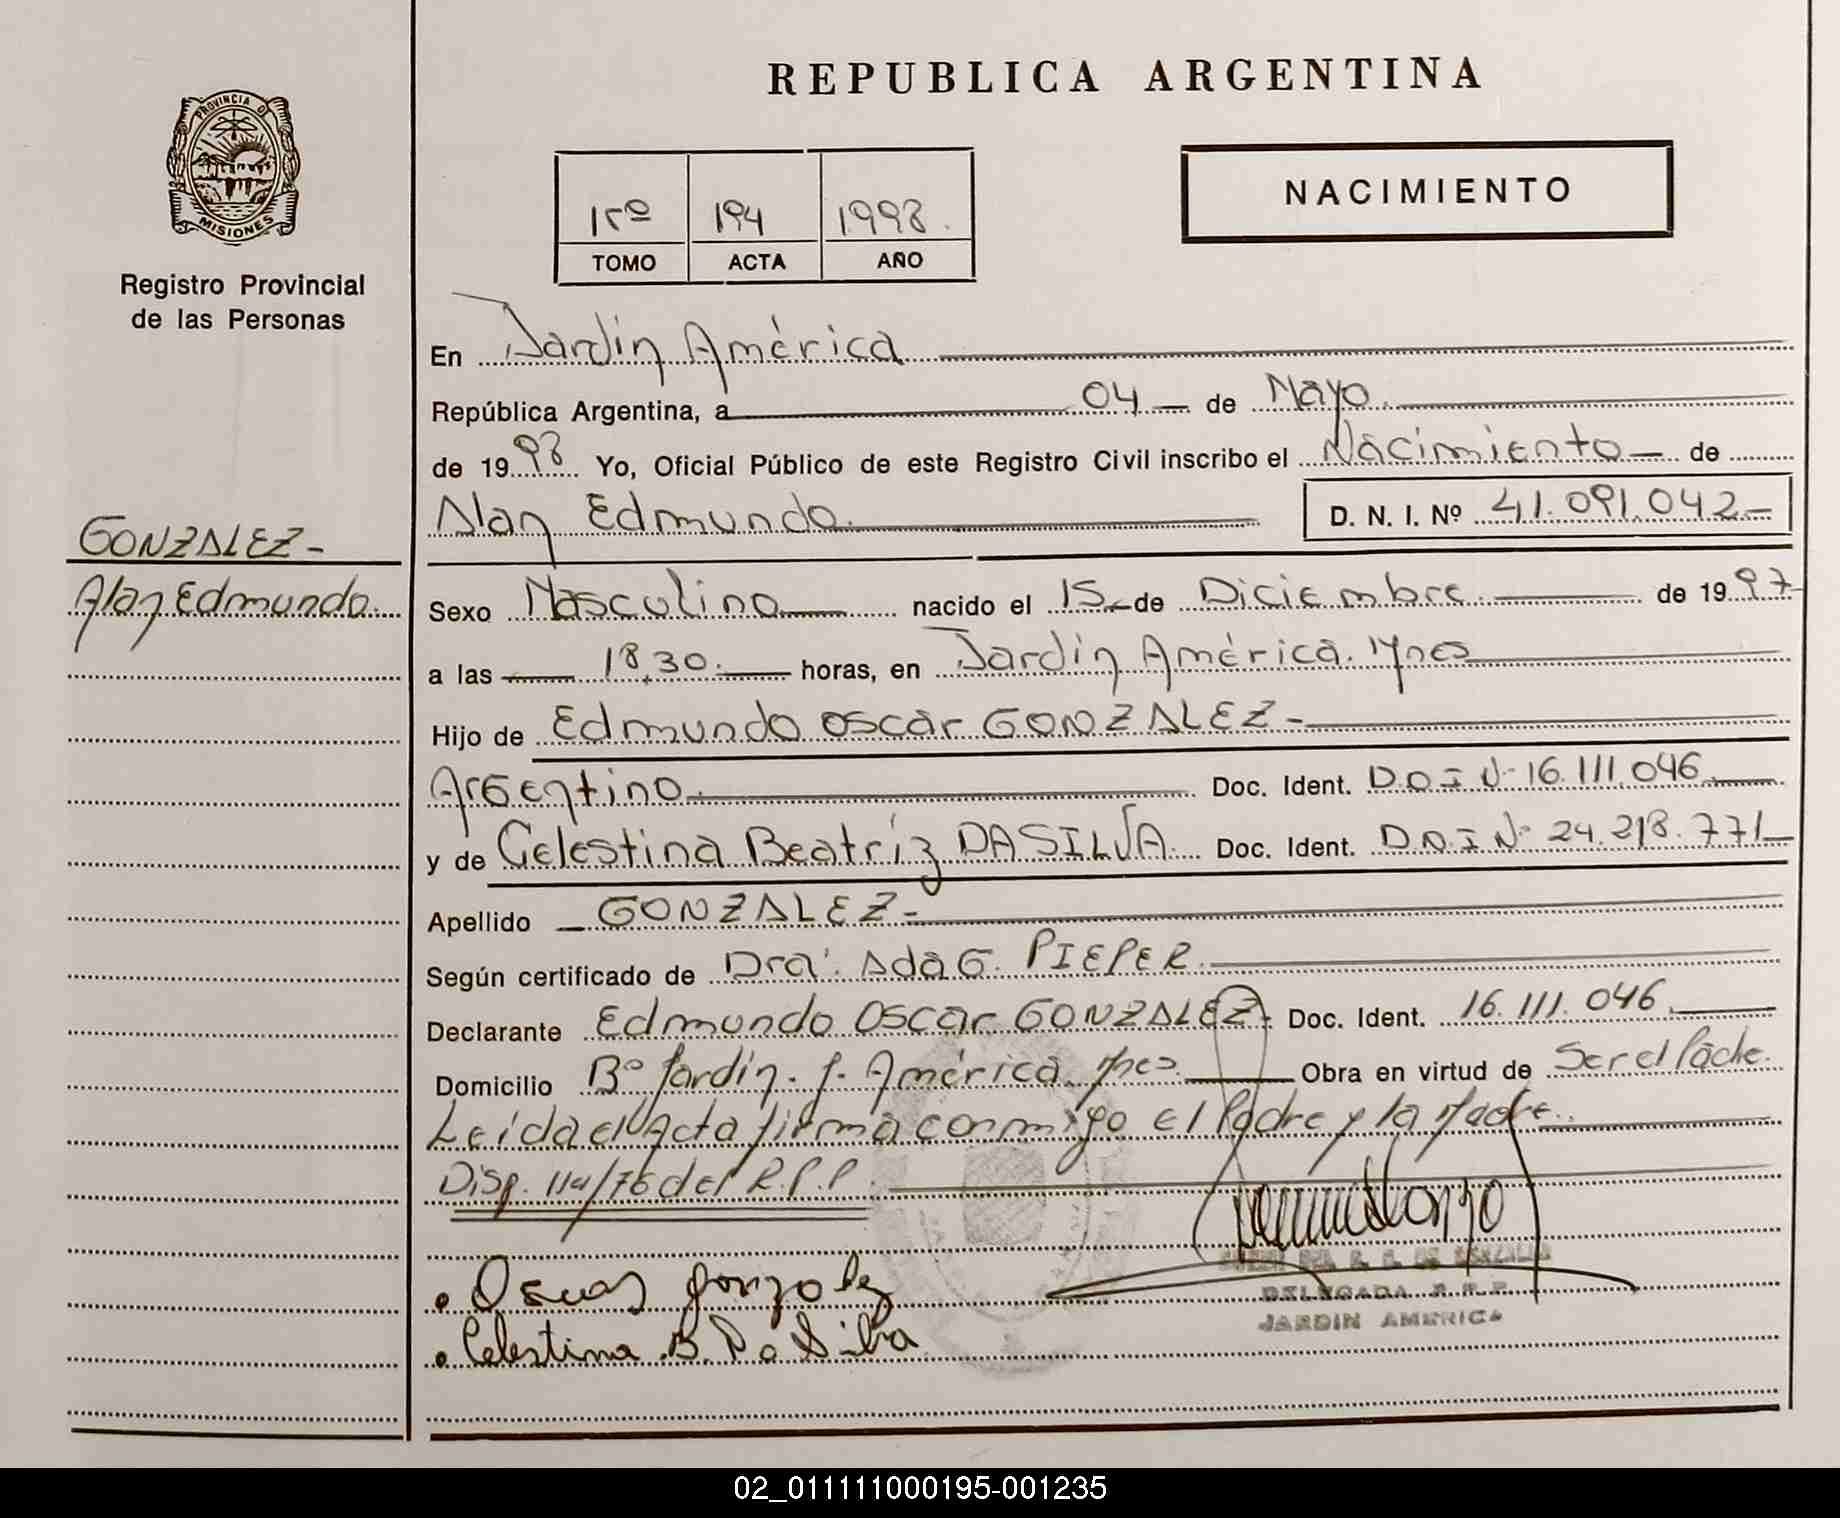 REPUBLICA ARGENTINA
PROVINCIA DE
MISIONES
Registro Provincial
de las Personas
1rº 194 1998.
TOMO ACTA AÑO
NACIMIENTO
En Jardín América
República Argentina, a 04 de Mayo.
de 1998 Yo, Oficial Público de este Registro Civil inscribo el Nacimiento de
Alan Edmundo. D. N. I. Nº 41.091.042-
GONZALEZ-
Alan Edmundo.
Sexo Masculino nacido el 15 de Diciembre. de 1997
a las 18,30. horas, en Jardín América. Mnes
Hijo de Edmundo Oscar GONZALEZ-
Argentino. Doc. Ident. D.N.I Nº 16.111.046
y de Celestina Beatríz DASILVA. Doc. Ident. D.N.I Nº 24.218.771
Apellido GONZALEZ-
Según certificado de Dra. Ada G. PIEPER.
Declarante Edmundo Oscar GONZALEZ. Doc. Ident. 16.111.046
Domicilio Bº Jardín. J. América. Mnes Obra en virtud de Ser el Padre.
Leída el Acta firma conmigo el Padre y la Madre.
Disp. 114/76 del R.P.P.
Oscar Gonzalez
Celestina B. Da Silva
DELEGADA R.P.P.
JARDIN AMERICA
02_011111000195-001235